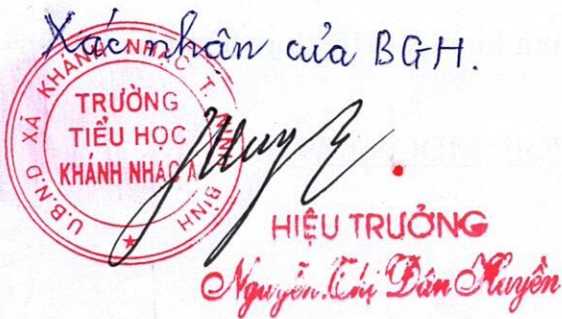 Xác nhận của BGH.
U.B.N.D XÃ KHÁNH NHẠC T. NINH BÌNH
TRƯỜNG
TIỂU HỌC
KHÁNH NHẠC A
HIỆU TRƯỞNG
Nguyễn Thị Đan Huyền